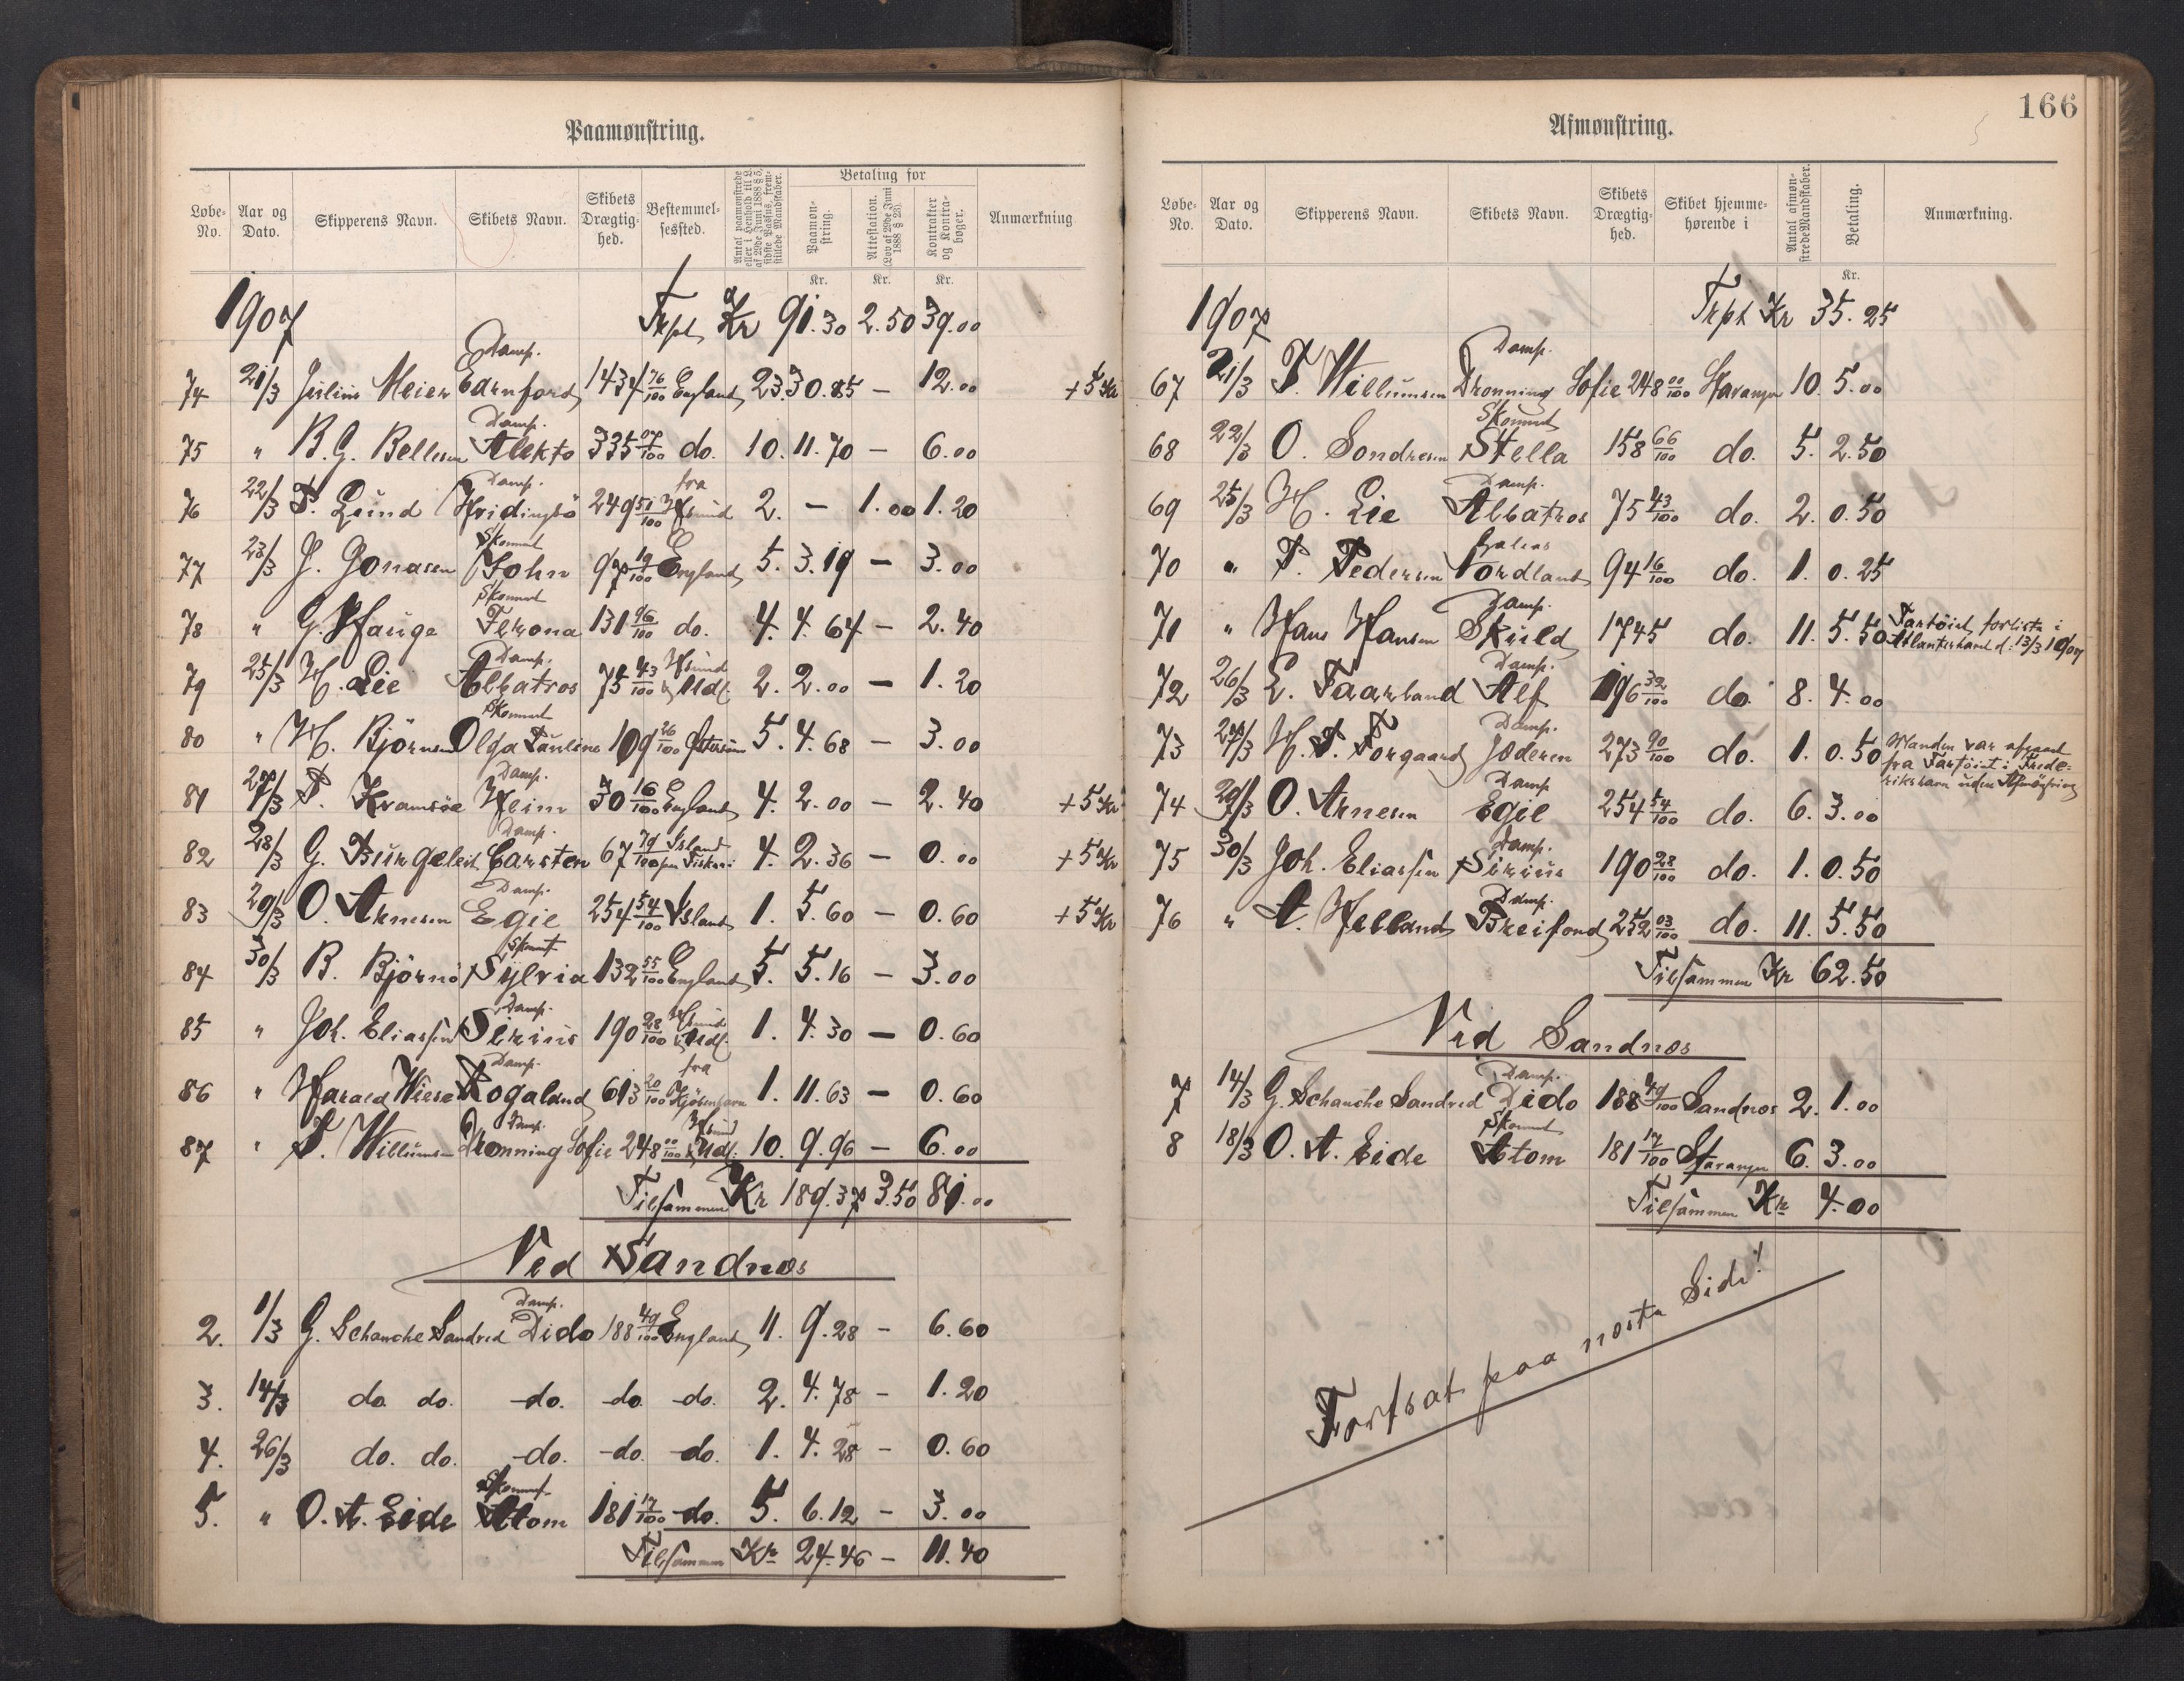 Paamønstring.
Løbe-No. Aar og Dato. Skipperens Navn. Skibets Navn. Skibets Drægtig-hed. Bestemmel-sessted. Antal paamønstrede eller i Henhold til L. af 29de Juni 1888 § 5, sidste Passus, frem-stillede Mandskaber. Betaling for Paamøn-string. Attestation. (Lov af 29de Juni 1888 § 23). Kontrakter og Kontra-bøger. Anmærkning
Kr. Kr. Kr.
1907 Trpt Kr 91.30 2.50 39.00
74 21/3 Julius Meier Damp. Earnford 1434 76/100 England 23 30.85 – 12.00 + 5 Kr
75 " B. G. Bellesen Damp. Alekto 335 07/100 do. 10. 11.70 – 6.00
76 22/3 P. Lund Damp. Hvidingsö 249 51/100 fra Hsund 2. – 1.00 1.20
77 23/3 J. Jonasen Skonnert John 97 19/100 England 5. 3.19 – 3.00
78 " G. Hauge Skonnert Terona 131 96/100 do. 4. 4.64 – 2.40
79 25/3 H. Lie Damp. Albatros 75 43/100 Hsund & Udl. 2. 2.00 – 1.20
80 " H. Björnsen Skonnert Olga Pauline 109 26/100 Østersöen 5. 4.68 – 3.00
81 27/3 P. Kramsöe Damp. Heim 30 16/100 England 4. 2.00 – 2.40 + 5 Kr
82 28/3 G. Burgeleit Damp. Carsten 67 79/100 Island paa Fiskeri 4. 2.36 – 0.00 + 5 Kr
83 29/3 O. Arnesen Damp. Egil 254 54/100 Island 1. 5.60 – 0.60 + 5 Kr
84 30/3 B. Björnö Skonnert Sylvia 132 55/100 England 5. 5.16 – 3.00
85 " Joh. Eliassen Damp. Sirius 190 28/100 Hsund & Udl. 1. 4.30 – 0.60
86 " Harald Wiese Damp. Rogaland 613 20/100 fra Kjöbenhavn 1. 11.63 – 0.60
87 " T. Willumsen Damp. Dronning Sofie 248 00/100 Hsund & Udl. 10. 9.96 – 6.00
Tilsammen Kr 189.37 3.50 81.00
Ved Sandnæs
2. 1/3 G. Schanche Sandved Damp. Dido 188 49/100 England 11. 9.28 – 6.60
3. 14/3 do do. do. do do. 2. 4.78 – 1.20
4. 26/3 do. do. do. do do. 1. 4.28 – 0.60
5. " O. A. Eide Skonnert Atom 181 17/100 do. 5. 6.12 – 3.00
Tilsammen Kr 24.46 – 11.40
166
Afmønstring.
Løbe-No. Aar og Dato. Skipperens Navn. Skibets Navn. Skibets Drægtig-hed. Skibet hjemme-hørende i Antal afmøn-strede Mandskaber. Betaling. Anmærkning.
Kr.
1907 Trpt Kr 35.25
67 21/3 T. Willumsen Damp. Dronning Sofie 248 00/100 Stavanger 10. 5.00
68 22/3 O. Sondresen Skonnert Stella 158 66/100 do. 5. 2.50
69 25/3 H. Lie Damp. Albatros 75 43/100 do. 2. 0.50
70 " P. Pedersen Galeas Nordland 94 16/100 do. 1. 0.25
71 " Hans Hansen Damp. Skuld 1745 do. 11. 5.50 Fartöiet forliste i Atlanterhavet d. 13/3 1907
72 26/3 E. Faarland Damp. Alf 196 32/100 do 8. 4.00
73 27/3 H. P. Torgaard Damp. Jæderen 273 90/100 do. 1. 0.50 Manden var afgaaet fra Fartöiet i Frede-rikshavn uden Afmönstring
74 29/3 O. Arnesen Damp Egil 254 54/100 do. 6. 3.00
75 30/3 Joh. Eliassen Damp. Sirius 190 28/100 do. 1. 0.50
76 " A. Helland Damp. Breifond 252 03/100 do. 11. 5.50
Tilsammen Kr 62.50
Ved Sandnæs
7 14/3 G. Schanche Sandved Damp. Dido 188 49/100 Sandnæs 2. 1.00
8 18/3 O. A. Eide Skonnert Atom 181 17/100 Stavanger 6. 3.00
Tilsammen Kr 4.00
Fortsat paa næste Side!